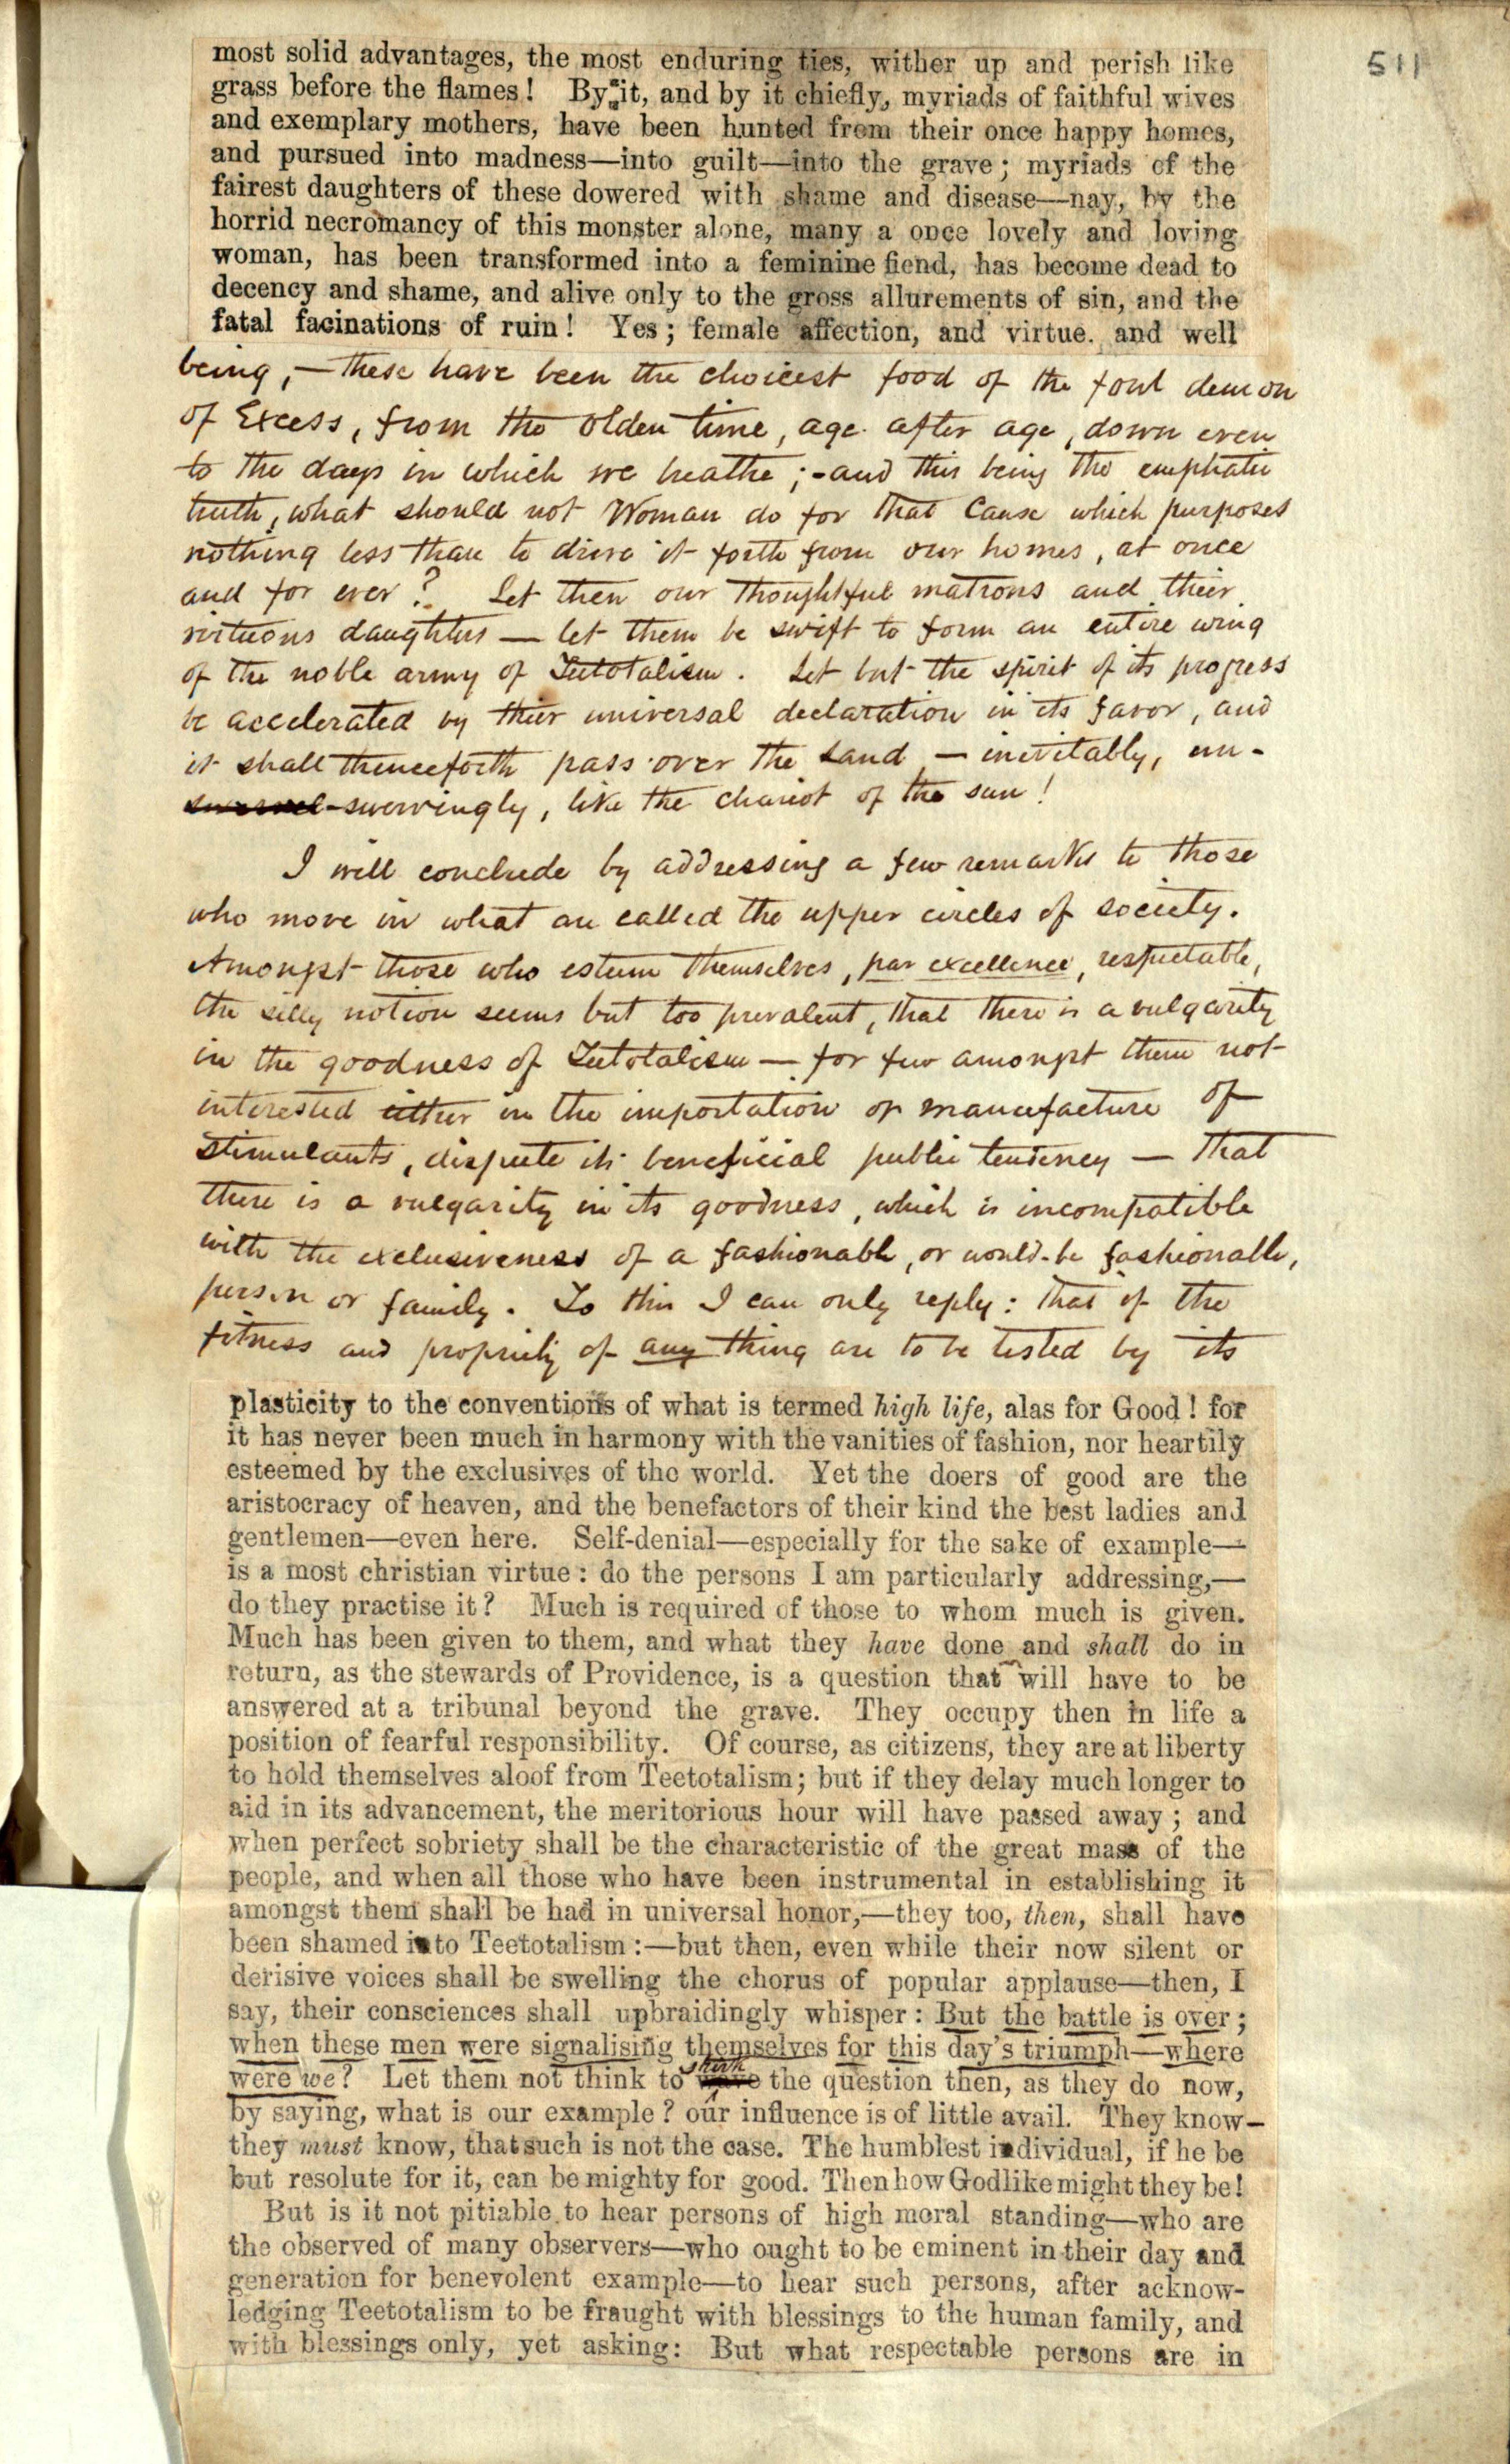 511
most solid advantages, the most enduring ties, wither up and perish like
grass before the flames! By it, and by it chiefly, myriads of faithful wives
and exemplary mothers, have been hunted from their once happy homes,
and pursued into madness—into guilt—into the grave; myriads of the
fairest daughters of these dowered with shame and disease—nay, by the
horrid necromancy of this monster alone, many a once lovely and loving
woman, has been transformed into a feminine fiend, has become dead to
decency and shame, and alive only to the gross allurements of sin, and the
fatal facinations of ruin! Yes; female affection, and virtue. and well
being, — these have been the choicest food of the foul demon
of Excess, from the olden time, age after age, down even
to the days in which we breathe; - and this being the emphatic
truth, what should not Woman do for that Cause which purposes
nothing less than to drive it forth from our homes, at once
and for ever? Let then our thoughtful matrons and their
virtuous daughters — let them be swift to form an entire wing
of the noble army of Teetotalism. Let but the spirit of its progress
be accelerated by their universal declaration in its favor, and
it shall thenceforth pass over the Land — inevitably, un-
swervingly, like the chariot of the sun!
I will conclude by addressing a few remarks to those
who move in what are called the upper circles of society.
Amongst those who esteem themselves, par excellence, respectable,
the silly notion seems but too prevalent, that there is a vulgarity
in the goodness of Teetotalism — for few amongst them not
interested either in the importation or manufacture of
stimulants, dispute its beneficial public tendency — that
there is a vulgarity in its goodness, which is incompatible
with the exclusiveness of a fashionable, or would-be fashionable,
person or family. To this I can only reply: that if the
fitness and propriety of any thing are to be tested by its
plasticity to the conventions of what is termed high life, alas for Good! for
it has never been much in harmony with the vanities of fashion, nor heartily
esteemed by the exclusives of the world. Yet the doers of good are the
aristocracy of heaven, and the benefactors of their kind the best ladies and
gentlemen—even here. Self-denial—especially for the sake of example—
is a most christian virtue: do the persons I am particularly addressing,—
do they practise it? Much is required of those to whom much is given.
Much has been given to them, and what they have done and shall do in
return, as the stewards of Providence, is a question that will have to be
answered at a tribunal beyond the grave. They occupy then in life a
position of fearful responsibility. Of course, as citizens, they are at liberty
to hold themselves aloof from Teetotalism; but if they delay much longer to
aid in its advancement, the meritorious hour will have passed away; and
when perfect sobriety shall be the characteristic of the great mass of the
people, and when all those who have been instrumental in establishing it
amongst them shall be had in universal honor,—they too, then, shall have
been shamed into Teetotalism:—but then, even while their now silent or
derisive voices shall be swelling the chorus of popular applause—then, I
say, their consciences shall upbraidingly whisper: But the battle is over;
when these men were signalising themselves for this day's triumph—where
were we? Let them not think to shirk the question then, as they do now,
by saying, what is our example? our influence is of little avail. They know—
they must know, that such is not the case. The humblest individual, if he be
but resolute for it, can be mighty for good. Then how Godlike might they be!
But is it not pitiable to hear persons of high moral standing—who are
the observed of many observers—who ought to be eminent in their day and
generation for benevolent example—to hear such persons, after acknow-
ledging Teetotalism to be fraught with blessings to the human family, and
with blessings only, yet asking: But what respectable persons are in